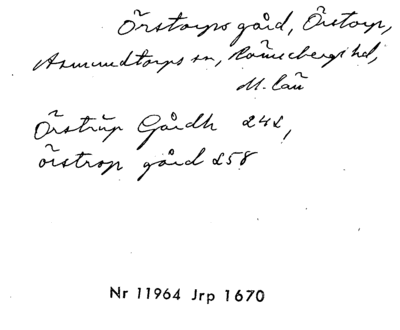 Örstorps gård, Örstorp,
Asmundtorps sn, Rönnebergs hd,
M. län
Örstrup Gårdh 242,
örstrop gård 258
Nr 11964 Jrp 1670